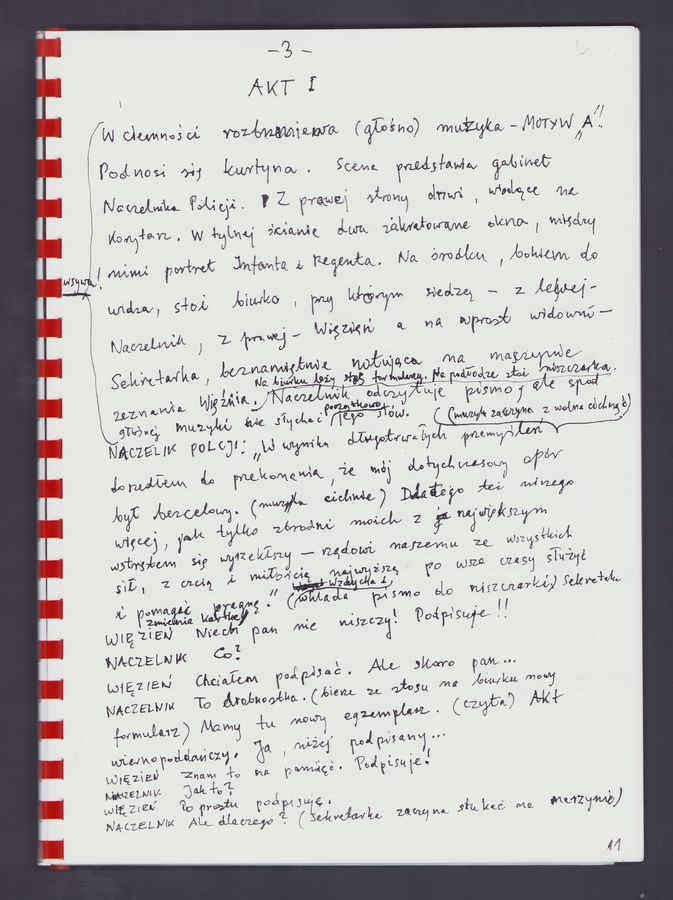 – 3 –
AKT I
(W ciemności rozbrzmiewa (głośno) muzyka – MOTYW „A"!
Podnosi się kurtyna. Scena przedstawia gabinet
Naczelnika Policji. Z prawej strony drzwi, wiodące na
korytarz. W tylnej ścianie dwa zakratowane okna, między
wsypa! nimi portret Infanta i Regenta. Na środku, bokiem do
widza, stoi biurko, przy którym siedzą – z lewej –
Naczelnik, z prawej – Więzień a na wprost widowni –
Sekretarka, beznamiętnie notująca na maszynie
Na biurku leży stos formularzy. Na podłodze stoi niszczarka.
zeznania Więźnia. Naczelnik odczytuje pismo, ale spod
głośnej muzyki nie słychać początkowo jego słów. (muzyka zaczyna z wolna cichnąć)
NACZELIK POLCJI: „W wyniku długotrwałych przemyśleń
doszedłem do przekonania, że mój dotychczasowy opór
był bezcelowy. (muzyka cichnie) Dlatego też niczego
więcej, jak tylko zbrodni moich z największym
wstrętem się wyrzekłszy – rządowi naszemu ze wszystkich
sił, z czcią i miłością najwyższą po wsze czasy służyć
i pomagać pragnę." (wzdycha i wkłada pismo do niszczarki) Sekretarka
zmienia kartkę)
WIĘZIEŃ Niech pan nie niszczy! Podpisuję!!
NACZELNIK Co?
WIĘZIEŃ Chciałem podpisać. Ale skoro pan...
NACZELNIK To drobnostka. (bierze ze stosu na biurku nowy
formularz) Mamy tu nowy egzemplarz. (czyta) Akt
wiernopoddańczy. Ja, niżej podpisany...
WIĘZIEŃ Znam to na pamięć. Podpisuję!
NACZELNIK Jak to?
WIĘZIEŃ Po prostu podpisuję.
NACZELNIK Ale dlaczego? (Sekretarka zaczyna stukać na maszynie)
11